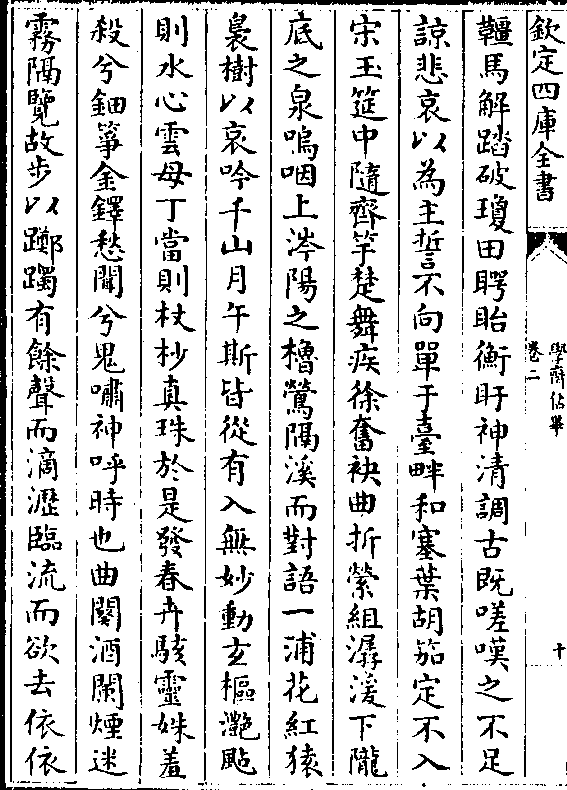 欽定四庫全書
學齋佔畢
卷二
十
韁馬解踏破瓊田聘眙衡盱神清調古既嗟嘆之不足
諒悲哀以為主誓不向單于臺畔和塞葉胡笳定不入
宋玉筵中隨齊竽楚舞疾徐奮袂曲折縈組潺湲下隴
底之泉嗚咽上涔陽之櫓鶯隔溪而對語一浦花紅猿
裊樹以哀吟千山月午斯皆從有入無妙動玄樞灔颭
則水心雲母丁當則杖杪真珠於是發春卉駭靈姝羞
殺兮鈿箏金鐸愁聞兮鬼嘯神呼時也曲闋酒闌煙迷
霧隔覽故步以躑躅有餘聲而滴瀝臨流而欲去依依